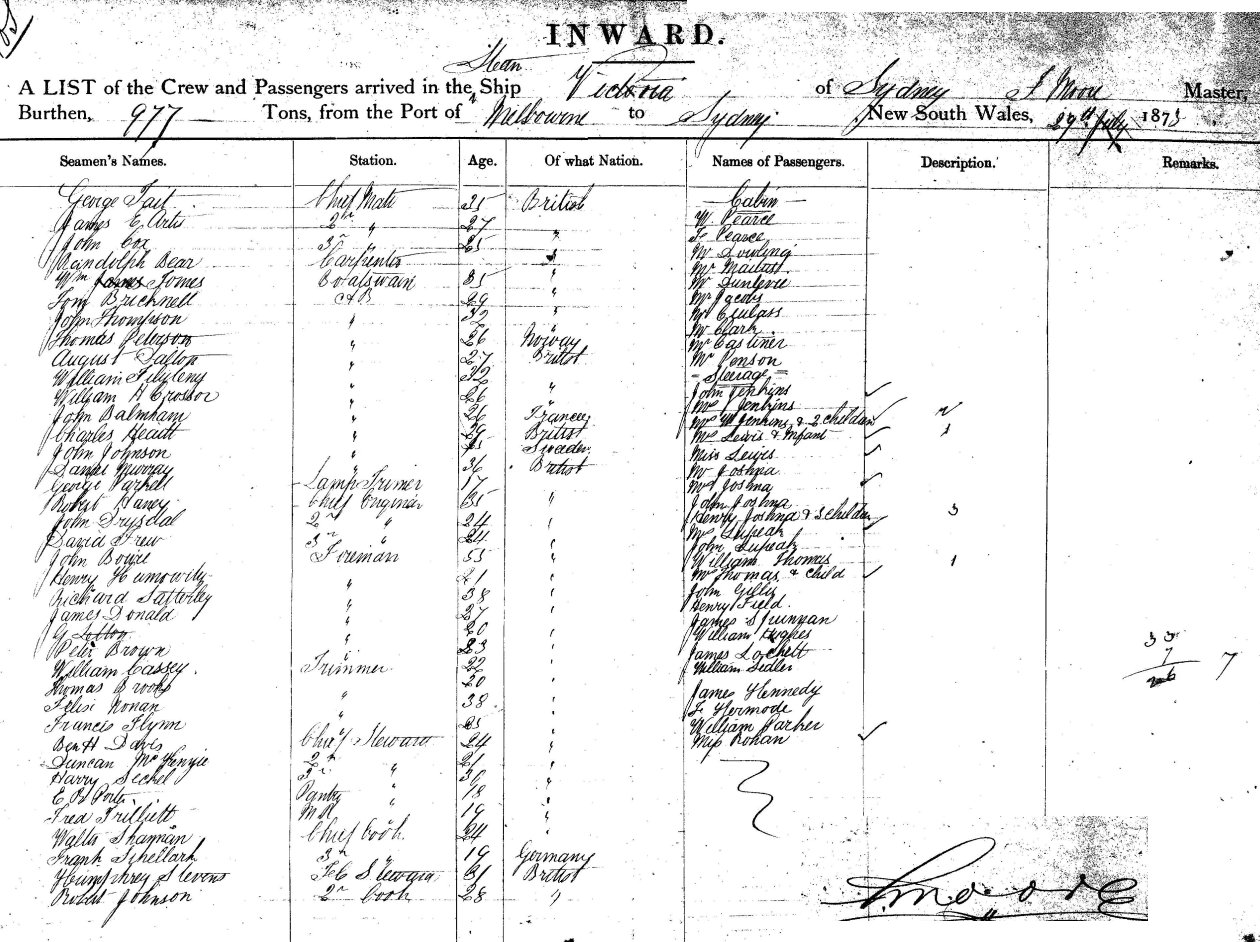 INWARD.
Steam
A LIST of the Crew and Passengers arrived in the Ship Victoria of Sydney J. Moore Master,
Burthen, 977 Tons, from the Port of Melbourne to Sydney New South Wales, 29th July 1873
Seamen's Names. Station. Age. Of what Nation. Names of Passengers. Description. Remarks.
George Tait Chief Mate 35 British Cabin
James E 2nd " 27 " W Pearce
John Cox 3rd " 25 " F Pearce
Randolph Bear Carpenter Mr Dowling
Wm Jones Boatswain 35 " Mr
Tom Bricknell AB 29 " Mr Dunlevie
John Thompson " 32 " Mr Jacobs
Thomas Peterson " 26 Norway Mr
August Dalton " 27 British Mr Clark
William " 32 Mr Castiner
William H Crossor " 26 " Mr Penson
John Balmham " 26 France Steerage
Charles Heatt " 29 British John Jenkins
John Johnson " Sweden Mrs Jenkins
Daniel Murray " 36 British Mrs W Jenkins & 2 children 2
George Parkes Lamp Trimer 17 Mrs Lewis & Infant 1
Robert Harvey Chief Enginier 35 " Miss Lewis
John Drysdal 2nd " 24 " Mr Joshua
David Frew 3rd " 24 " Mrs Joshua
John Bowie Foreman 55 " John Joshua
Henry " 21 " Henry Joshua & 3 children 3
Richard Satterley " 38 " Mrs
James Donald " 27 " John
G " 20 " William Thomas 1
Peter Brown " 23 " Mrs Thomas & Child
William Cassey Trimmer 22 " John Gillis
Thomas Brooks " 20 " Henry Field
Felix Nonan " 38 " James
Francis Flynn " 25 " William Hughes
Ben H Davis Chief Steward 24 " James Lockett
Duncan McKenzie 2nd " 21 " William Sidler
Harry Sechel 3rd " 30 " James Kennedy
E B Porter Pantry " 18 " F Kermode
Fred Trilliett 19 " William Parker
Walter Sharman Chief Cook 24 " Miss Rohan
Frank Schellark 3rd " 19 Germany
Humphrey Stevens Steward 31 British
Robert Johnson 2nd Cook 28 "
33
7
26 7
J Moore